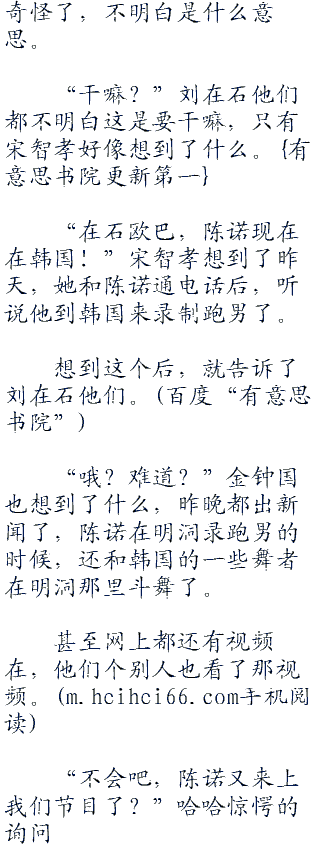 奇怪了，不明白是什么意
思。
“干嘛？”刘在石他们
都不明白这是要干嘛，只有
宋智孝好像想到了什么。{有
意思书院更新第一}
“在石欧巴，陈诺现在
在韩国！”宋智孝想到了昨
天，她和陈诺通电话后，听
说他到韩国来录制跑男了。
想到这个后，就告诉了
刘在石他们。(百度“有意思
书院”)
“哦？难道？”金钟国
也想到了什么，昨晚都出新
闻了，陈诺在明洞录跑男的
时候，还和韩国的一些舞者
在明洞那里斗舞了。
甚至网上都还有视频
在，他们个别人也看了那视
频。(m.hcihci66.com手机阅
读)
“不会吧，陈诺又来上
我们节目了？”哈哈惊愕的
询问